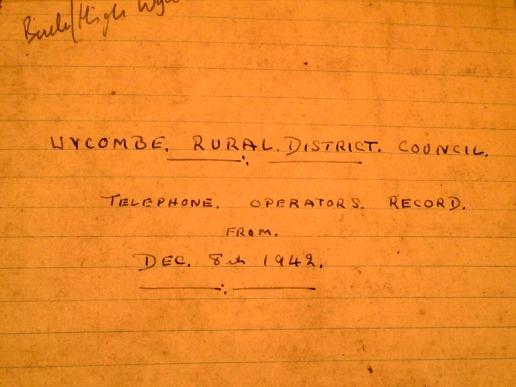 Bucks/High Wyc
WYCOMBE. RURAL. DISTRICT. COUNCIL.
TELEPHONE. OPERATORS. RECORD.
FROM.
DEC. 8th 1942.